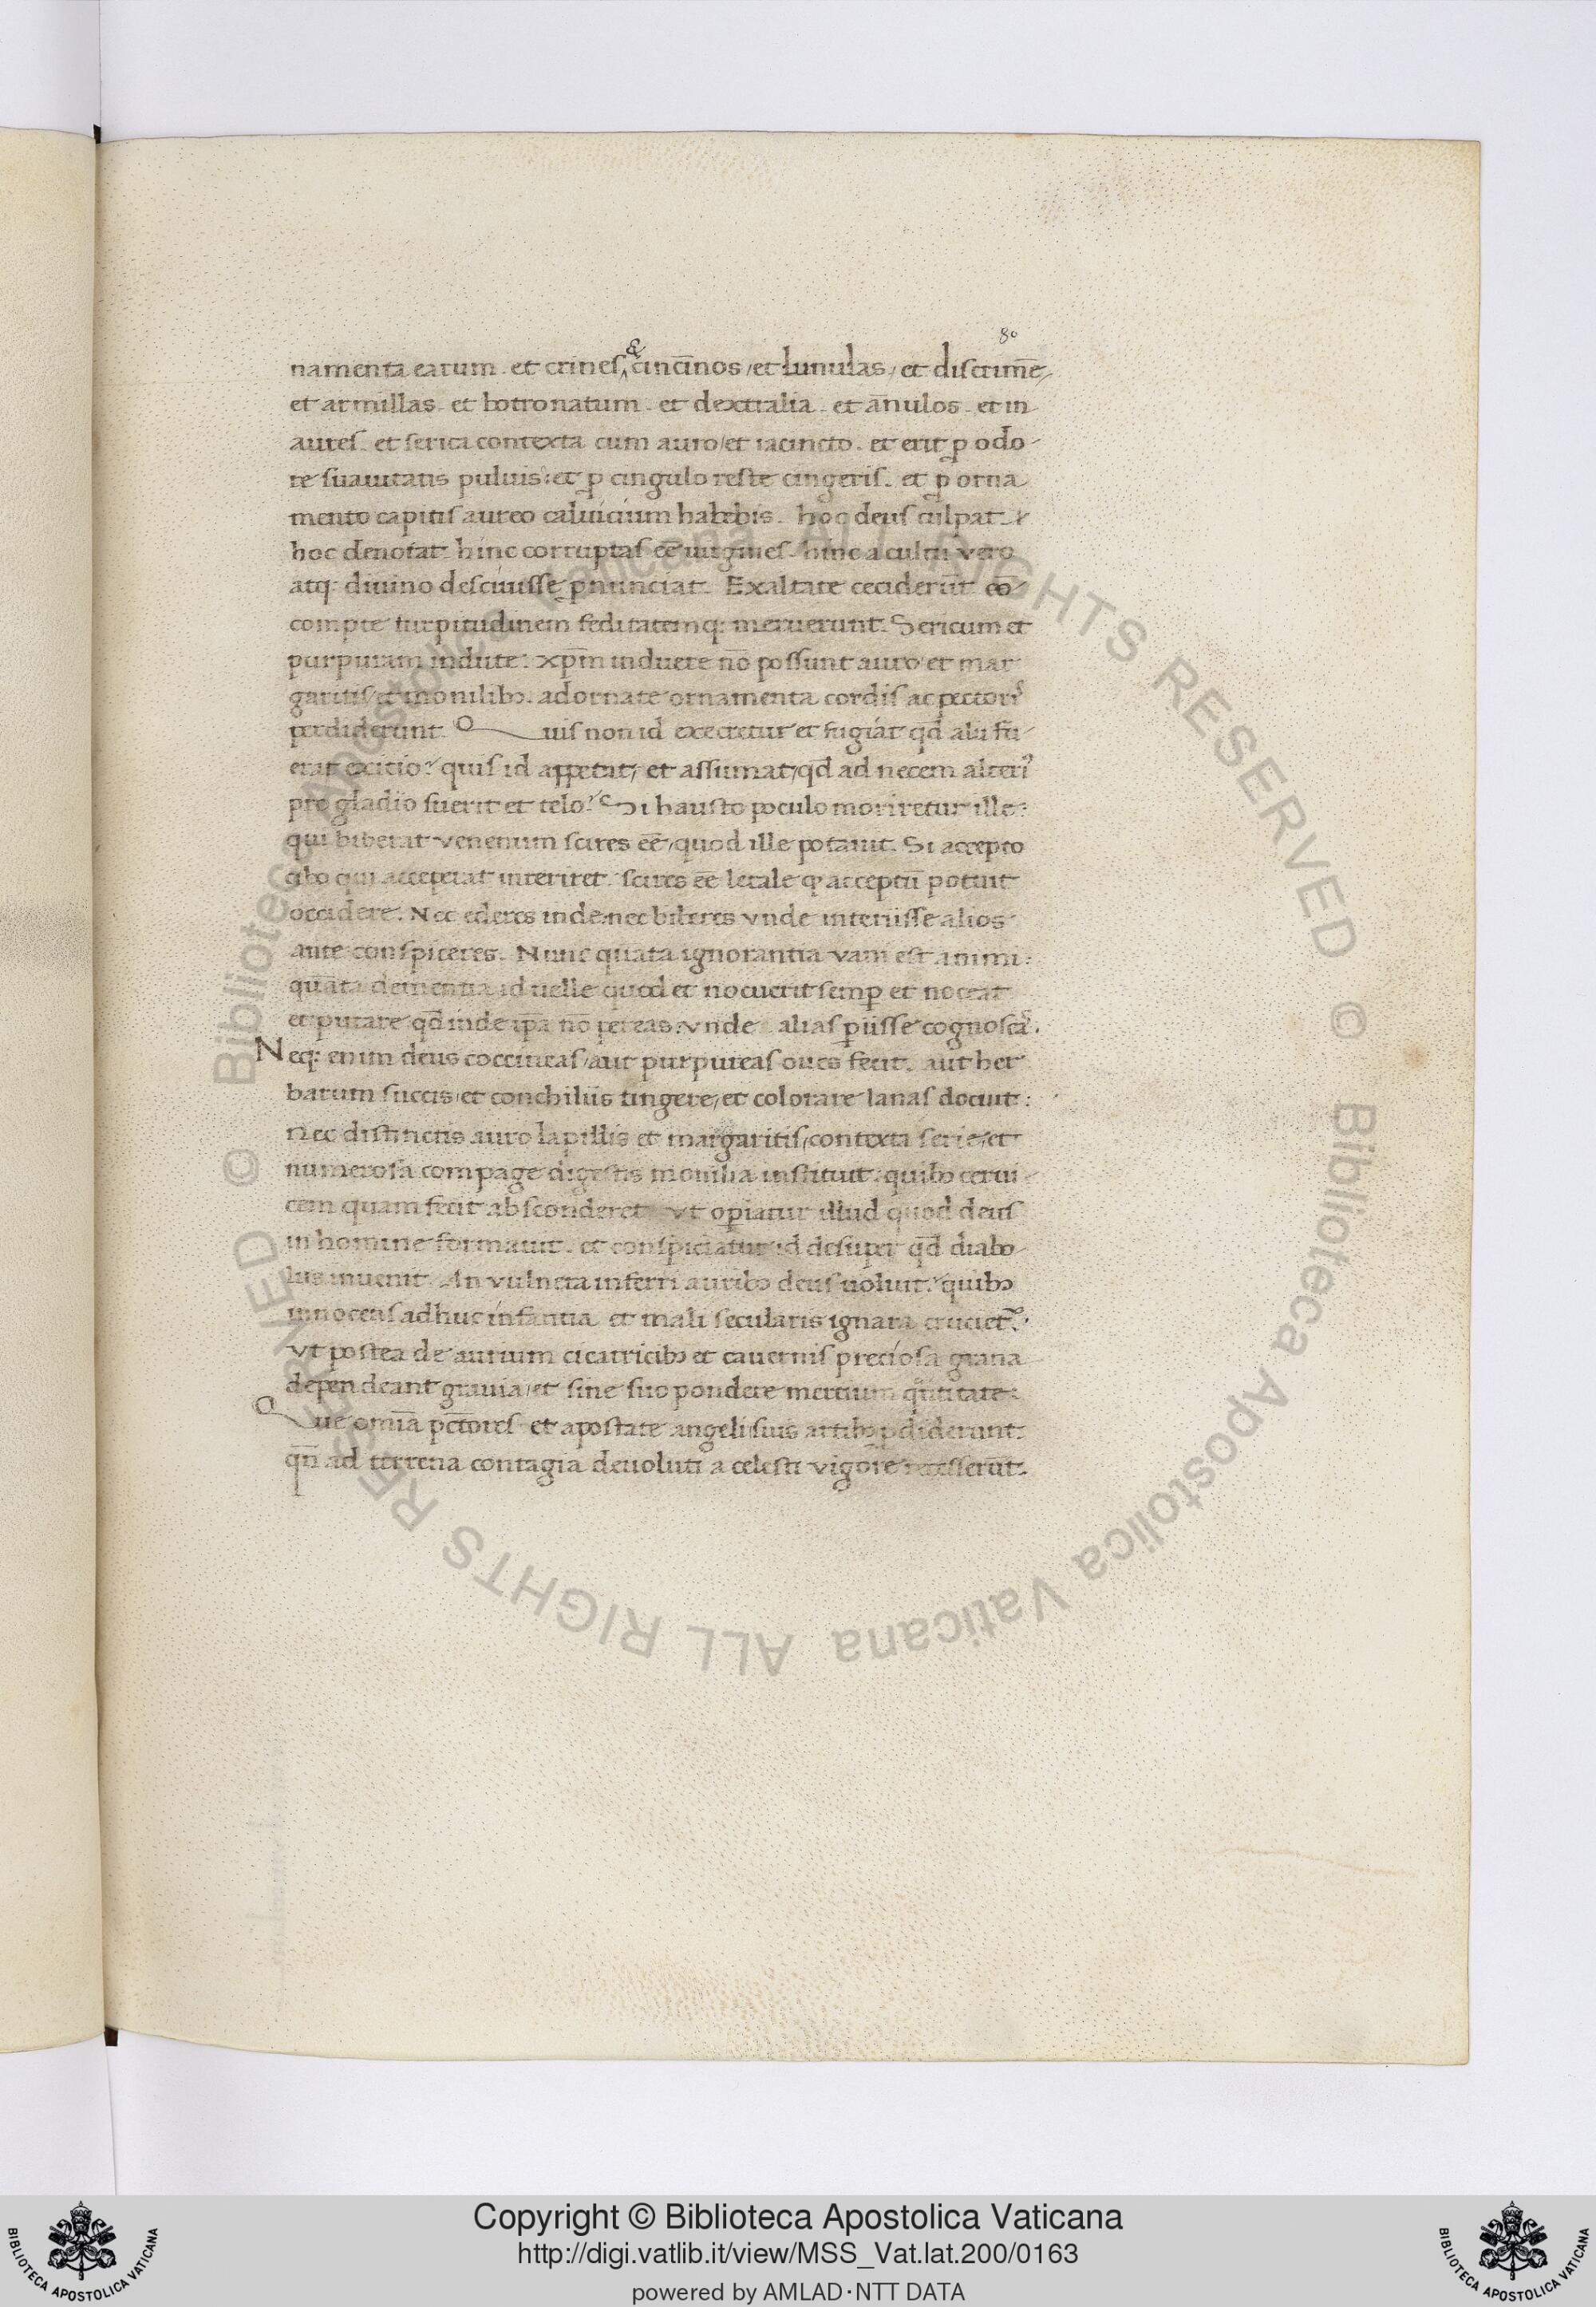 80
namenta earum. et crines, & cincīnos /et lunulas/ et discrimīe
et armillas. et botronatum. et dextralia. et ānulos. et in
aures. et serica contexta cum auro/et iacincto. et erit ꝓ odo
re suauitatis puluis: et ꝓ cingulo reste cingeris. et ꝓ orna
mento capitis aureo caluicium habebis. hoc deus culpat.
hoc denotat: hinc corruptas eē uirgines. hinc a cultu vero
atq: diuino desciuisse ꝓnunciat. Exaltate ceciderūt cō
compte turpitudinem feditatemq: meruerunt. Sericum et
purpuram indute: xp̄m induere nō possunt auro/et mar
garitis/et monilibꝫ. adornate ornamenta cordis ac pectorꝰ
perdiderunt. Quis non id execretur et fugiat qd̄ alii fu
erat exitio? quis id appetat/ et assumat/qd̄ ad necem alterꝰ
pro gladio fuerit et telo? Si hausto poculo moriretur ille:
qui biberat venenum scires eē/quod ille potauit. Si accepto
cibo qui acceperat interiret. scires eē letale qꝫ acceptū potuit
occidere. Nec ederes inde: nec biberes vnde interiisse alios
ante conspiceres. Nunc quāta ignorantia vani est animi:
quāta dementia id uelle quod et nocuerit semꝑ et noceat
et putare qd̄ inde ip̄a nō pereas: vnde alias ꝑiisse cognoscas.
Neq: enim deus coccineas/aut purpureas oues fecit. aut her
barum succis/et conchiliis tingere/et colorare lanas docuit:
Nec distinctis auro lapillis et margaritis/contexta serie/et
numerosa compage digestis monilia instituit: quibꝫ cerui
cem quam fecit absconderet. vt operiatur illud quod deus
in homine formauit. et conspiciatur id desuper qd̄ diabo
lus inuenit. An vulnera inferri auribꝫ deus uoluit: quibꝫ
innocens adhuc infantia et mali secularis ignara crucietꝰ?
vt postea de aurium cicatricibꝫ et cauernis preciosa grana
dependeant grauia/et sine suo pondere mercium qūtitate:
Que omīa pc̄tores et apostate angeli suis artibꝫ ꝓdiderunt:
qn̄ ad terrena contagia deuoluti a celesti vigore recesserūt.
© Biblioteca Apostolica Vaticana ALL RIGHTS RESERVED
© Biblioteca Apostolica Vaticana ALL RIGHTS RESERVED
Copyright © Biblioteca Apostolica Vaticana
http://digi.vatlib.it/view/MSS_Vat.lat.200/0163
powered by AMLAD·NTT DATA
BIBLIOTECA APOSTOLICA VATICANA
BIBLIOTECA APOSTOLICA VATICANA